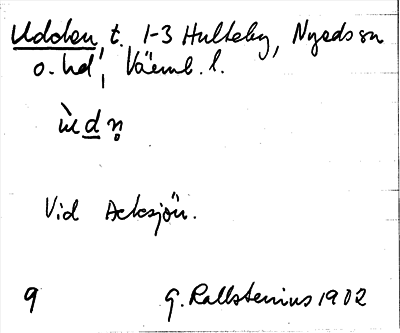 Udden, t. 1-3 Hulteby, Nyeds sn
o. hd, Värml. l.
ùdṇ
Vid Acksjön.
9 G. Kallstenius 1902